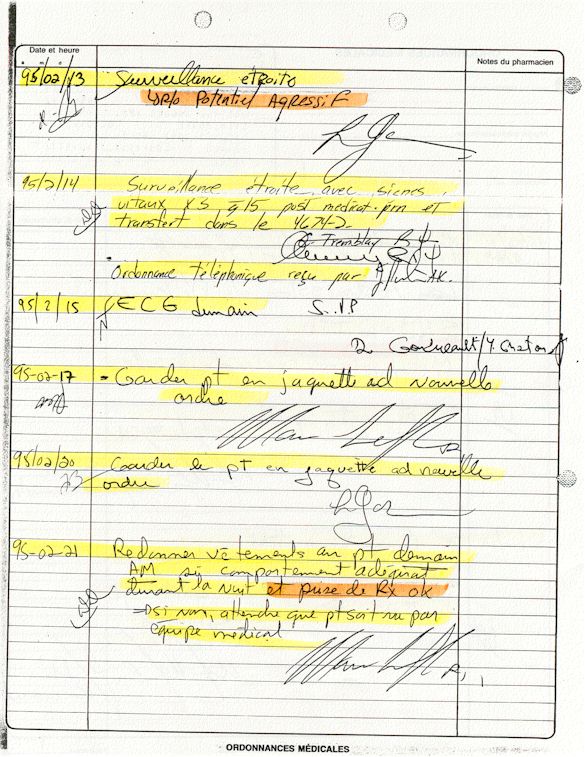 Date et heure
Notes du pharmacien
95/02/13 Surveillance étroite
Potentiel Agressif
95/2/14 Surveillance étroite avec signes
vitaux X5 q15 post médicat. prn et
transfert dans le 4674-2
Tremblay
Ordonnance téléphonique reçu par
95/2/15 ECG demain S.V.P
95-02-17 - Garder pt en jaquette ad nouvelle
ordre
95/02/20 Garder le pt en jaquette ad nouvelle
ordre
95-02-21 Redonner vêtements au pt demain
AM si comportement adéquat
durant la nuit et prise de Rx ok
si non, attendre que pt soit vu par
équipe médical
ORDONNANCES MÉDICALES